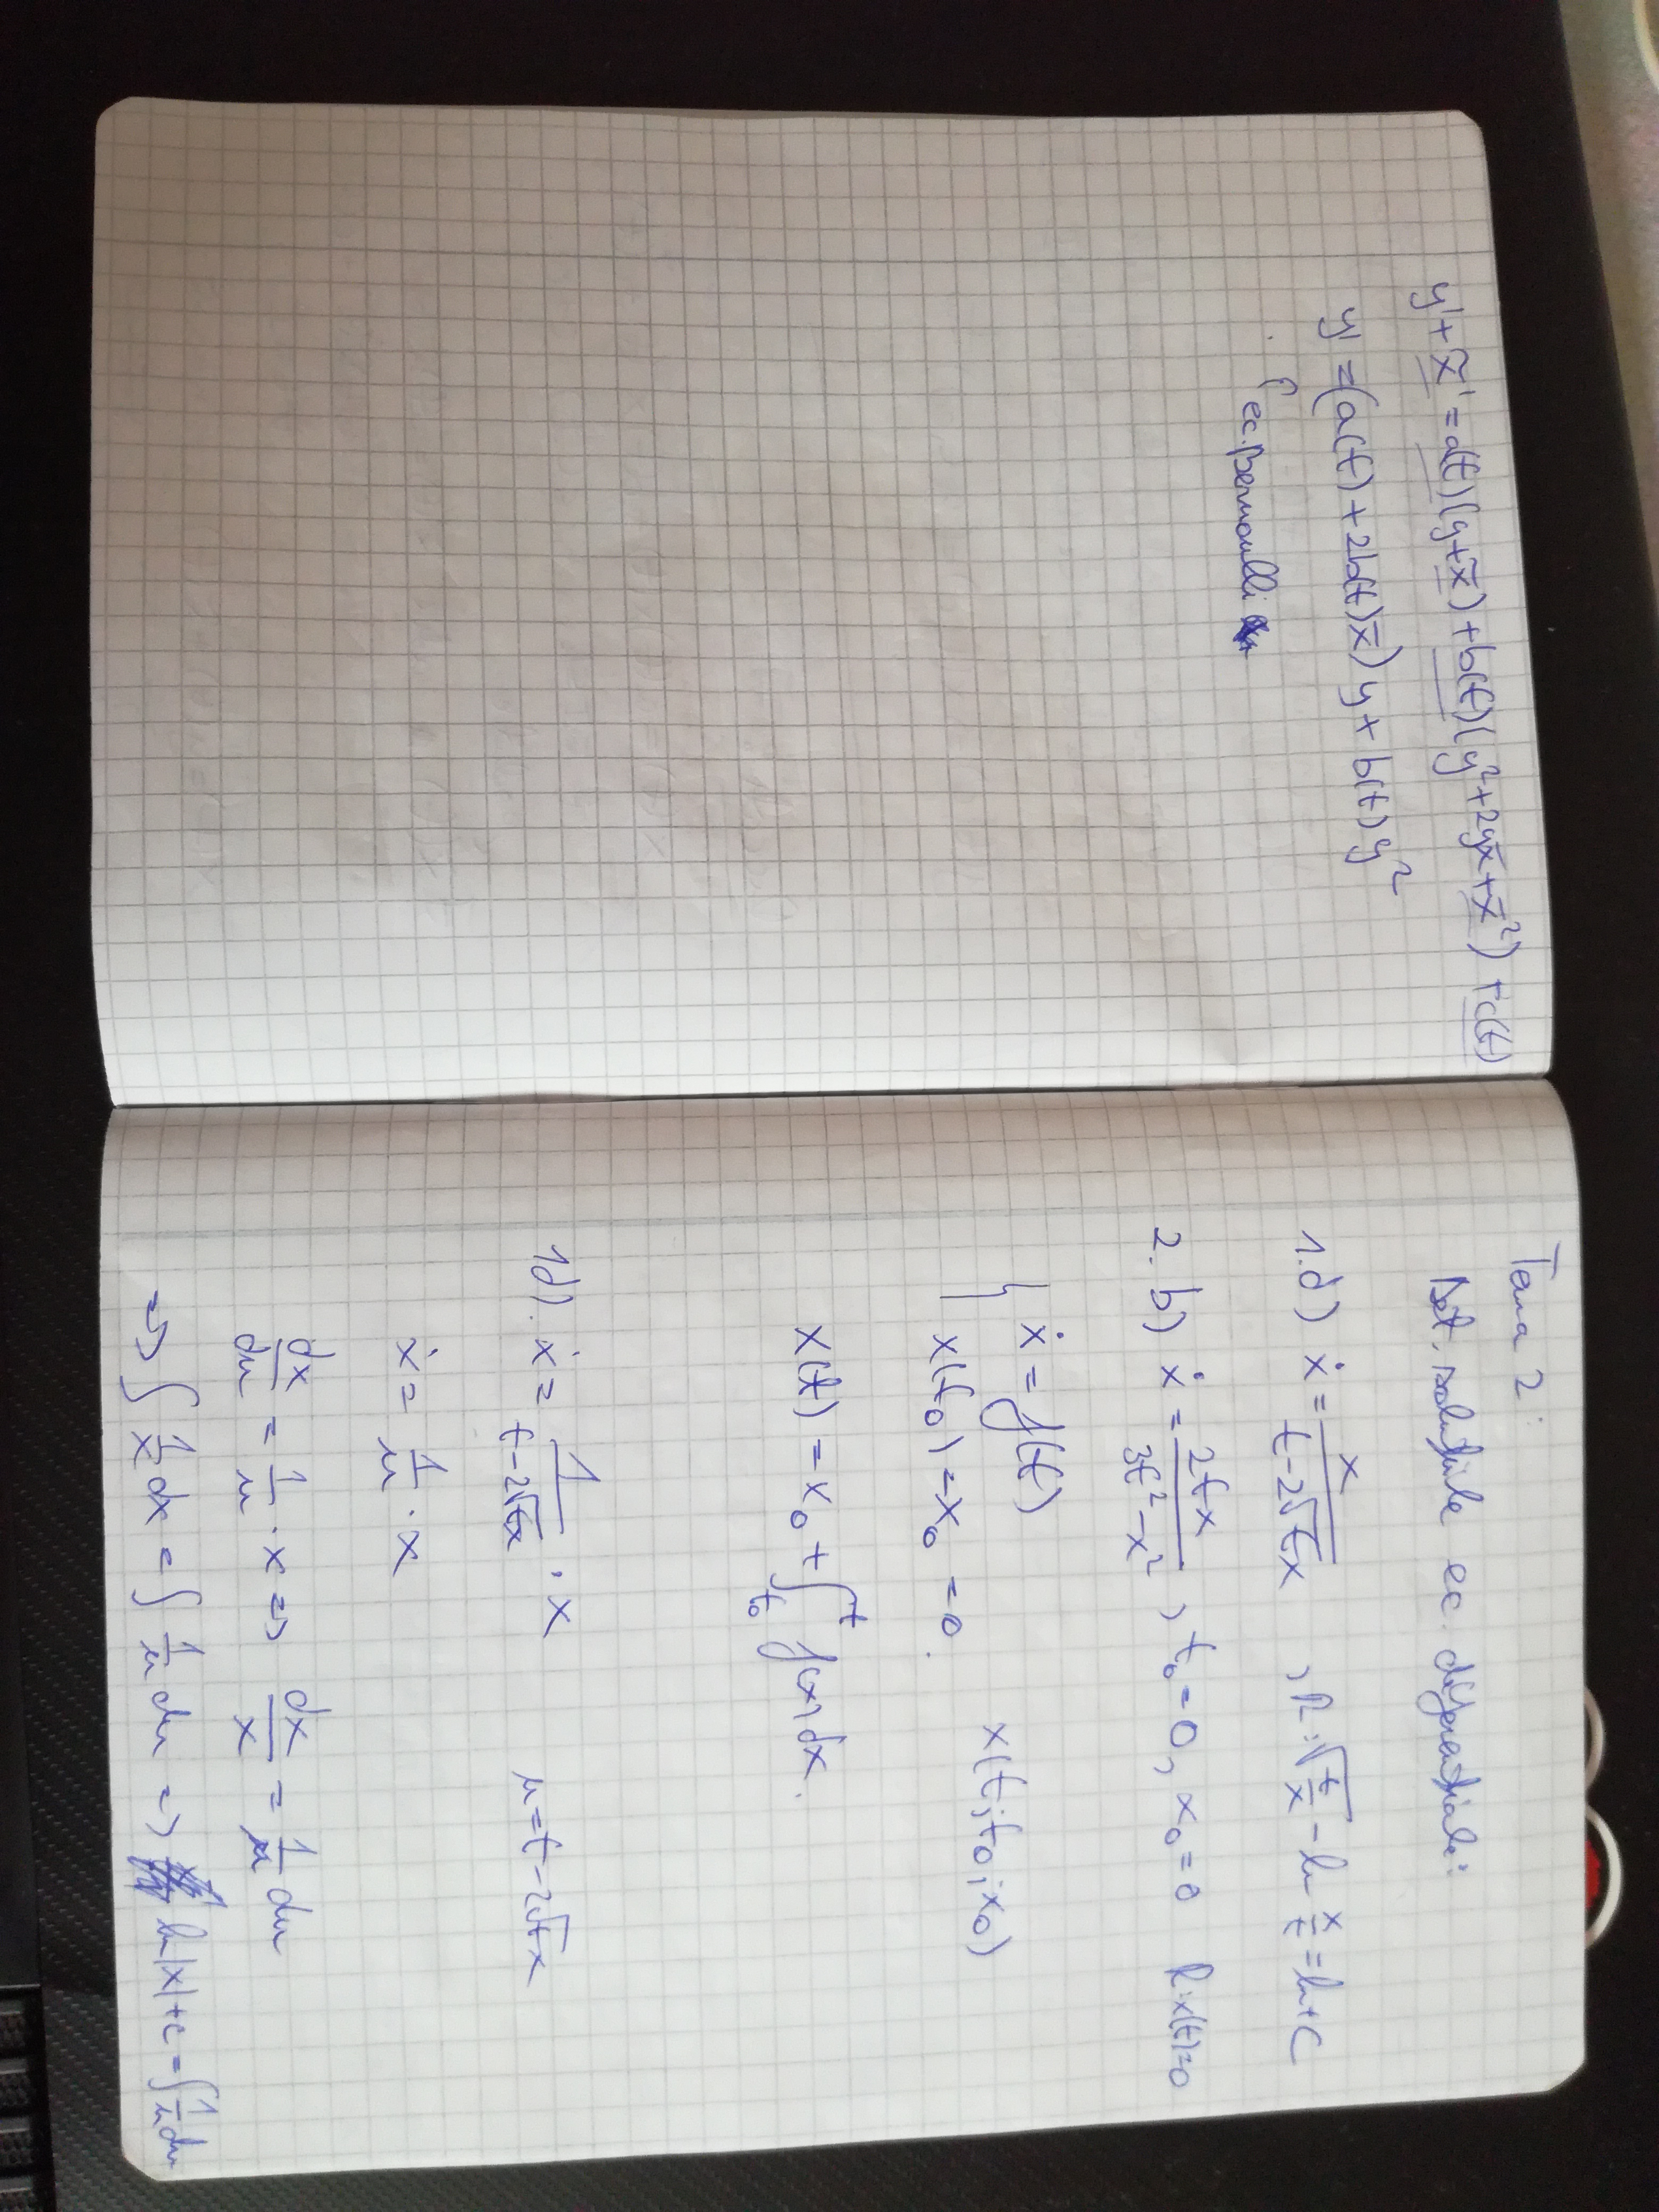 y' + x̃' = a(t)(y+x̄) + b(t)(y²+2yx̄+x̄²) + c(t)
y' = (a(t) + 2b(t)x̄) y + b(t) y²
ec. Bernoulli
Tema 2:
Det. soluțiile ec. diferențiale:
1.d) ẋ = x/(t-2√tx) , R: √(t/x) - ln x/t = ln t C
2. b) ẋ = 2tx/(3t²-x²) , t₀=0, x₀=0 R: x(t)=0
{ ẋ = f(t)
x(t₀) = x₀ = 0. x(t; t₀; x₀)
x(t) = x₀ + ∫_{t₀}^{t} f(x) dx.
1d). ẋ = 1/(t-2√tx) · x u = t-2√tx
ẋ = 1/u · x
dx/du = 1/u · x => dx/x = 1/u du
=> ∫ 1/x dx = ∫ 1/u du => ln|x| + c = ∫ 1/u du